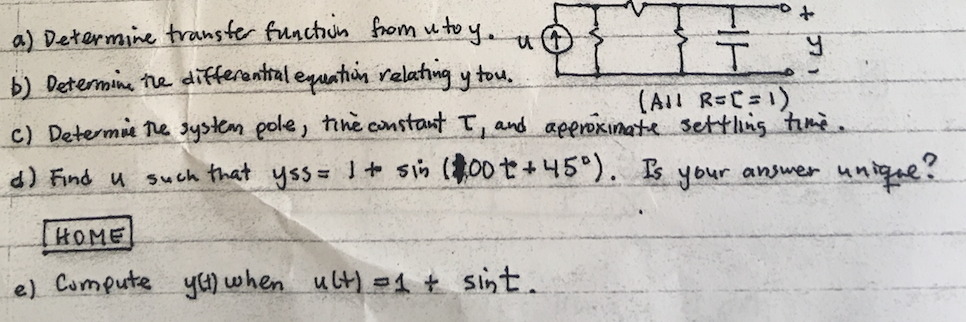 a) Determine transfer function from u to y. u + y -
b) Determine the differential equation relating y to u.
(All R=C=1)
c) Determine the system pole, time constant τ, and approximate settling time.
d) Find u such that yss = 1 + sin (100t+45°). Is your answer unique?
HOME
e) Compute y(t) when u(t) = 1 + sin t.